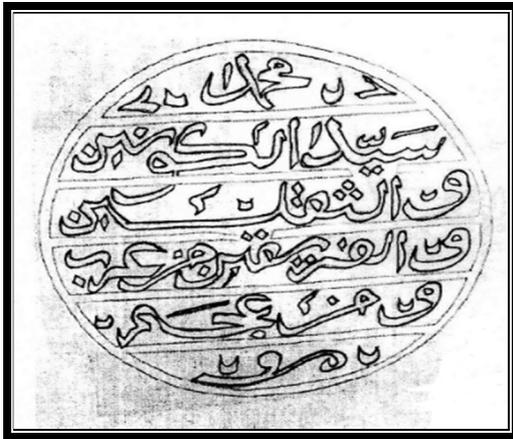 محمد
سَيِّد الكونين
و الثقلين
و الفريقين من عرب
و من عجم